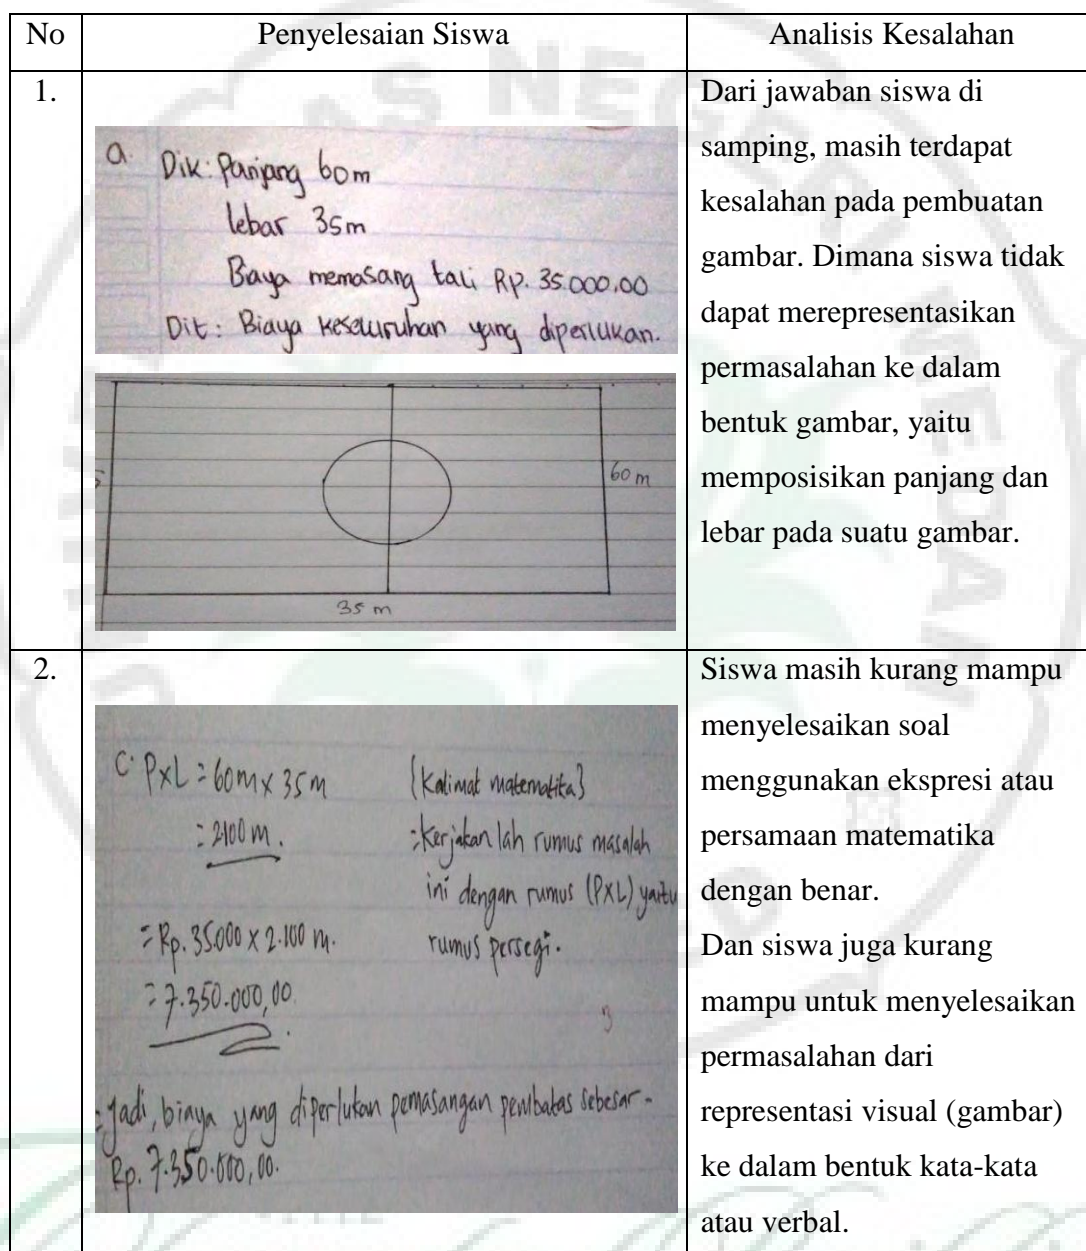 No Penyelesaian Siswa Analisis Kesalahan
1.
a. Dik: Panjang 60m
lebar 35m
Biaya memasang tali Rp. 35.000,00
Dit: Biaya keseluruhan yang diperlukan.
60 m
35 m
Dari jawaban siswa di
samping, masih terdapat
kesalahan pada pembuatan
gambar. Dimana siswa tidak
dapat merepresentasikan
permasalahan ke dalam
bentuk gambar, yaitu
memposisikan panjang dan
lebar pada suatu gambar.
2.
C. PxL = 60m x 35m
= 2100 m.
= Rp. 35.000 x 2.100 m.
= 7.350.000,00.
(Kalimat matematika)
= Kerjakan lah rumus masalah
ini dengan rumus (PxL) yaitu
rumus persegi.
3
= Jadi, biaya yang diperlukan pemasangan pembatas sebesar -
Rp. 7.350.000,00.
Siswa masih kurang mampu
menyelesaikan soal
menggunakan ekspresi atau
persamaan matematika
dengan benar.
Dan siswa juga kurang
mampu untuk menyelesaikan
permasalahan dari
representasi visual (gambar)
ke dalam bentuk kata-kata
atau verbal.